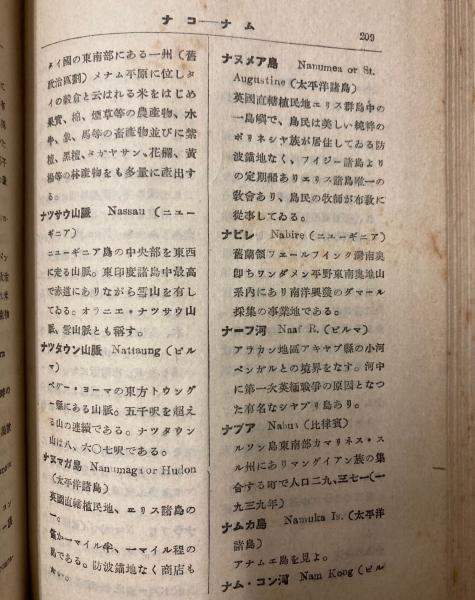 ナコ—ナム
209
タイ國の東南部にある一州（舊
政治區劃）メナム平原に位しタ
イの穀倉と云はれる米をはじめ
果實、棉、煙草等の農產物、水
牛、象、馬等の畜產物並びに紫
檀、黑檀、タガヤサン、花櫚、黃
楊等の林產物をも多量に産出す
る。
ナツサウ山脈 Nassau（ニユー
ギニア）
ニューギニア島の中央部を東西
に走る山脈。東印度諸島中最高
で赤道にありながら雪山を有し
てゐる。オラニエ・ナツサウ山
脈、雪山脈とも稱す。
ナツタウン山脈 Nattaung（ビル
マ）
ペグー・ヨーマの東方トウング
ー縣にある山脈。五千呎を超え
る山の連續である。ナツタウン
山は八、六〇七呎である。
ナヌマガ島 Nanumaga or Hudon
（太平洋諸島）
英國直轄植民地、エリス諸島の
一。
僅か一マイル半、一マイル程の
島である。防波錨地なく商店も
ない。
ナヌメア島 Nanumea or St.
Augustine（太平洋諸島）
英國直轄植民地エリス群島中の
一島嶼で、島民は美しい純粹の
ポリネシヤ族が居住してゐる防
波錨地なく、フイジー諸島より
の定期船ありエリス諸島唯一の
敎會あり、島民の牧師が布敎に
從事してゐる。
ナビレ Nabire（ニューギニア）
舊蘭領フェールフインク灣南奥
卽ちワンダメン平野東南奥地山
系內にあり南洋興發のダマール
採集の事業地である。
ナーフ河 Naaf R.（ビルマ）
アラカン地區アキヤブ縣の小河
ベンガルとの境界をなす。河中
に第一次英緬戰爭の原因となつ
た有名なシヤプリ島あり。
ナブア Nabua（比律賓）
ルソン島東南部カマリネス・ス
ル州にありマンダイアン族の集
合する町で人口二九、三七一（一
九三九年）
ナムカ島 Namuka Is.（太平洋
諸島）
アナムエ島を見よ。
ナム・コン河 Nam Kong（ビル